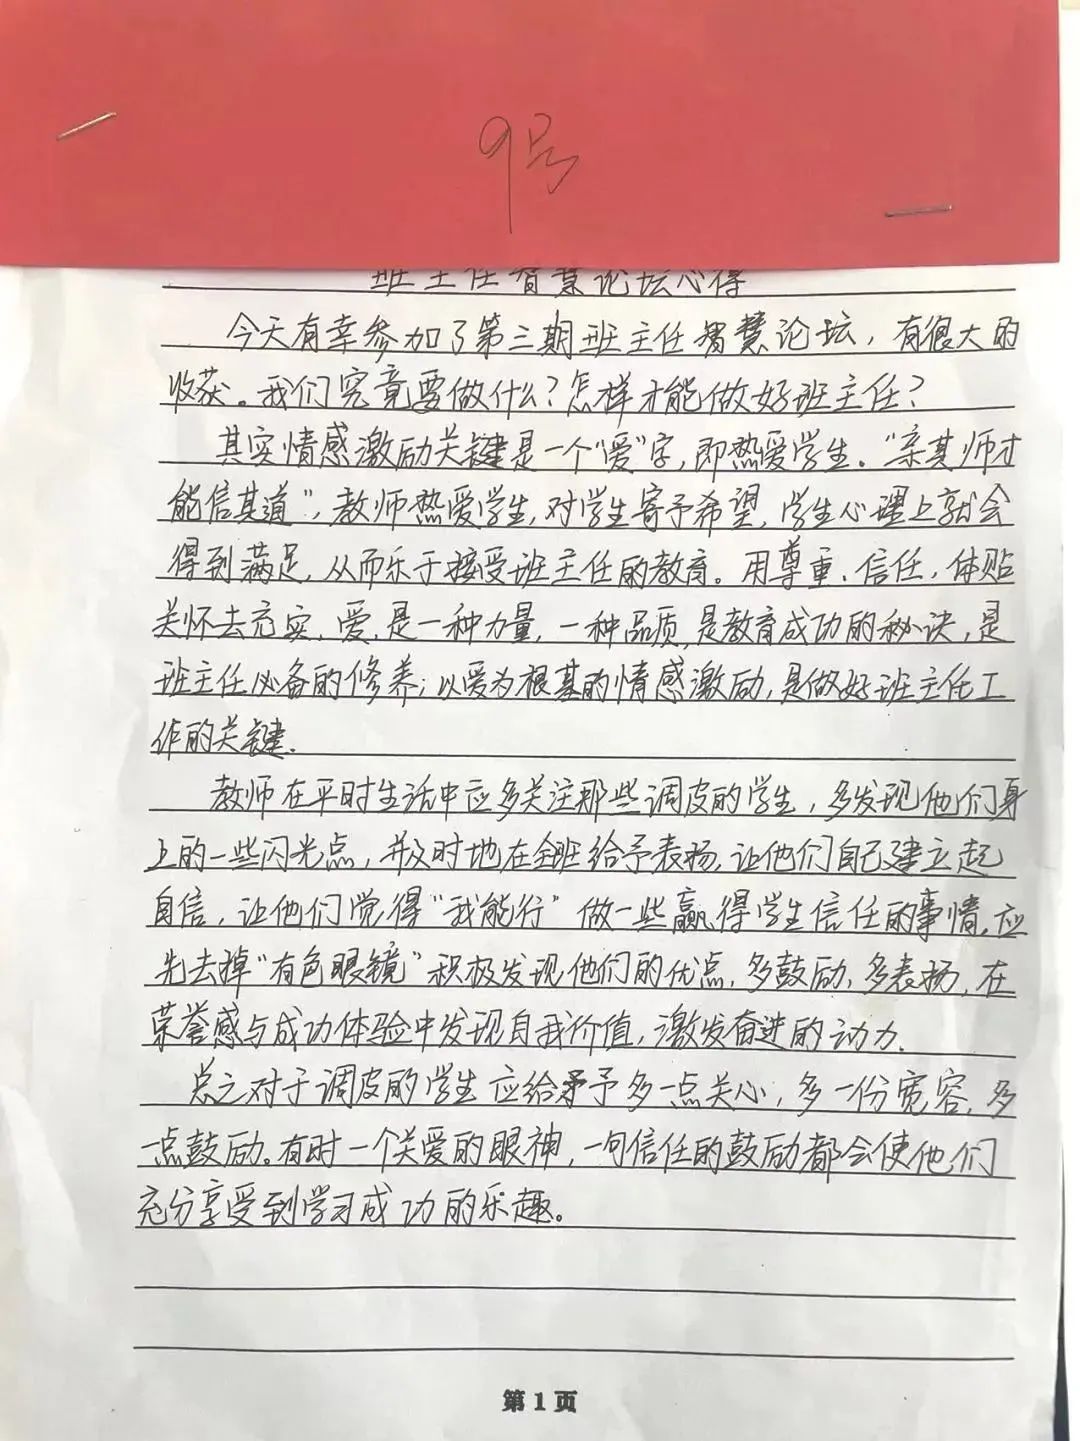 9号
班主任智慧论坛心得
今天有幸参加了第三期班主任智慧论坛，有很大的
收获。我们究竟要做什么？怎样才能做好班主任？
其实情感激励关键是一个“爱”字，即热爱学生。“亲其师才
能信其道”，教师热爱学生，对学生寄予希望，学生心理上就会
得到满足，从而乐于接受班主任的教育。用尊重、信任，体贴
关怀去充实，爱，是一种力量，一种品质，是教育成功的秘诀，是
班主任必备的修养；以爱为根基的情感激励，是做好班主任工
作的关键.
教师在平时生活中应多关注那些调皮的学生，多发现他们身
上的一些闪光点，并及时地在全班给予表扬，让他们自己建立起
自信，让他们觉得“我能行”做一些赢得学生信任的事情，应
先去掉“有色眼镜”积极发现他们的优点，多鼓励，多表扬，在
荣誉感与成功体验中发现自我价值，激发奋进的动力.
总之对于调皮的学生应给予多一点关心，多一份宽容，多
一点鼓励。有时一个关爱的眼神，一句信任的鼓励都会使他们
充分享受到学习成功的乐趣。
第1页